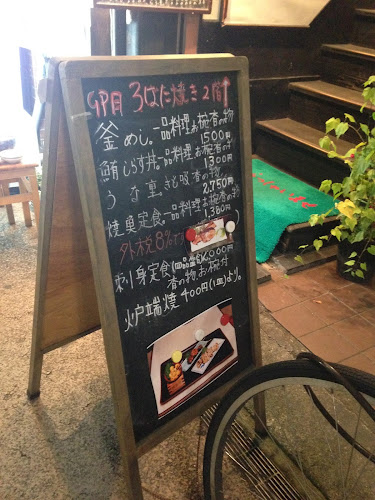 ろばた焼き2階↑
釜めし。一品料理お椀香の物
1500円
鮪しらす丼。一品料理お椀香の
1300円
うな重。きも吸香の物。
2,750円
焼魚定食。一品料理お椀香の物
1,380円
外税8%
刺身定食(四品盛)
,000円
香の物、お椀付
炉端焼400円(1皿)より。